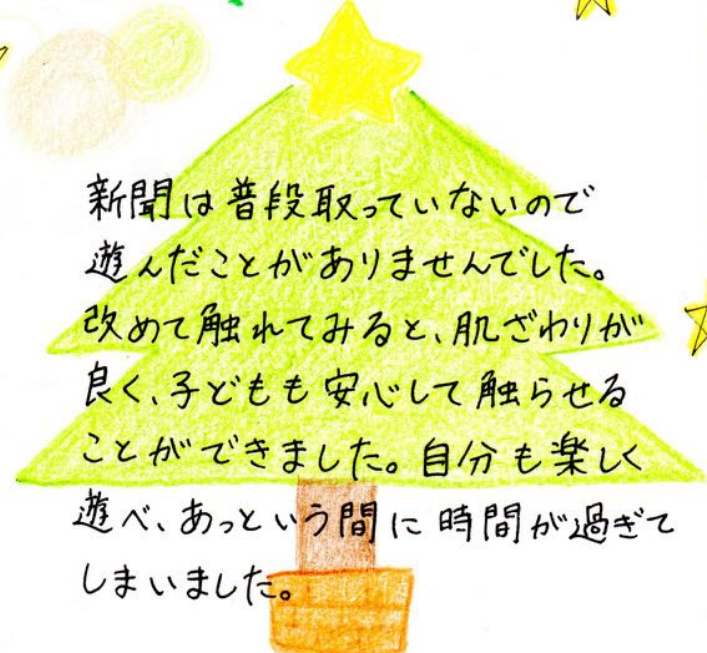 新聞は普段取っていないので
遊んだことがありませんでした。
改めて触れてみると、肌ざわりが
良く、子どもも安心して触らせる
ことができました。自分も楽しく
遊べ、あっという間に時間が過ぎて
しまいました。